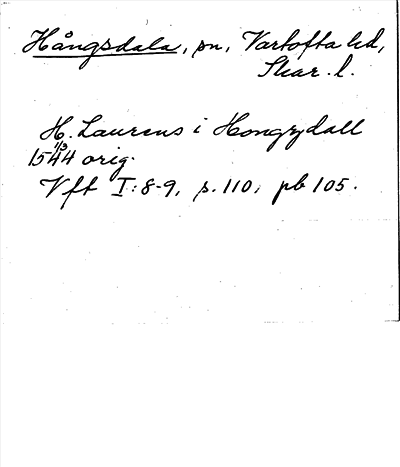 Hångsdala, sn, Vartofta hd,
Skar. l.
H. Laurens i Hongzdall
1544 1/3 orig.
Vft I:8-9, s. 110, pb 105.